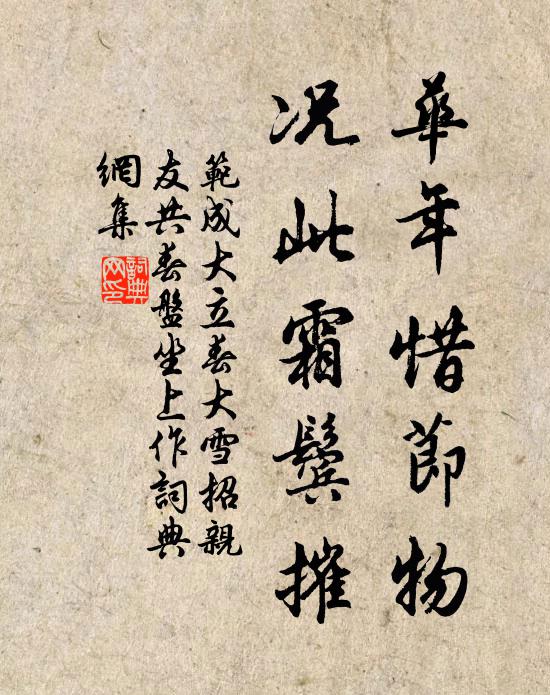 華年惜節物
况此霜鬢摧
範成大立春大雪招親
友共春盤坐上作詞典
網集
詞典
网印